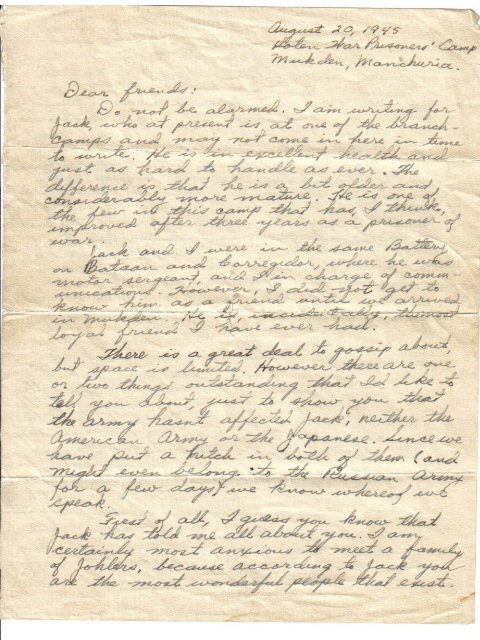 August 20, 1945
Hoten War Prisoners' Camp
Mukden, Manchuria.
Dear friends:
Do not be alarmed. I am writing for
Jack, who at present is at one of the branch
camps and may not come in here in time
to write. He is in excellent health and
just as hard to handle as ever. The
difference is that he is a bit older and
considerably more mature. He is one of
the few in this camp that has, I think,
improved after three years as a prisoner of
war.
Jack and I were in the same Battery
on Bataan and Corregidor, where he was
motor sergeant, and I in charge of comm-
unications. However, I did not get to
know him as a friend until we arrived
in Mukden. He is, incidentally, the most
loyal friend I have ever had.
There is a great deal to gossip about
but space is limited. However there are one
or two things outstanding that I'd like to
tell you about, just to show you that
the army hasn't affected Jack, neither the
American Army or the Japanese. Since we
have put a hitch in both of them (and
might even belong to the Russian Army
for a few days) we know whereof we
speak.
First of all, I guess you know that
Jack has told me all about you. I am
certainly most anxious to meet a family
of Johlers, because according to Jack you
are the most wonderful people that exist.